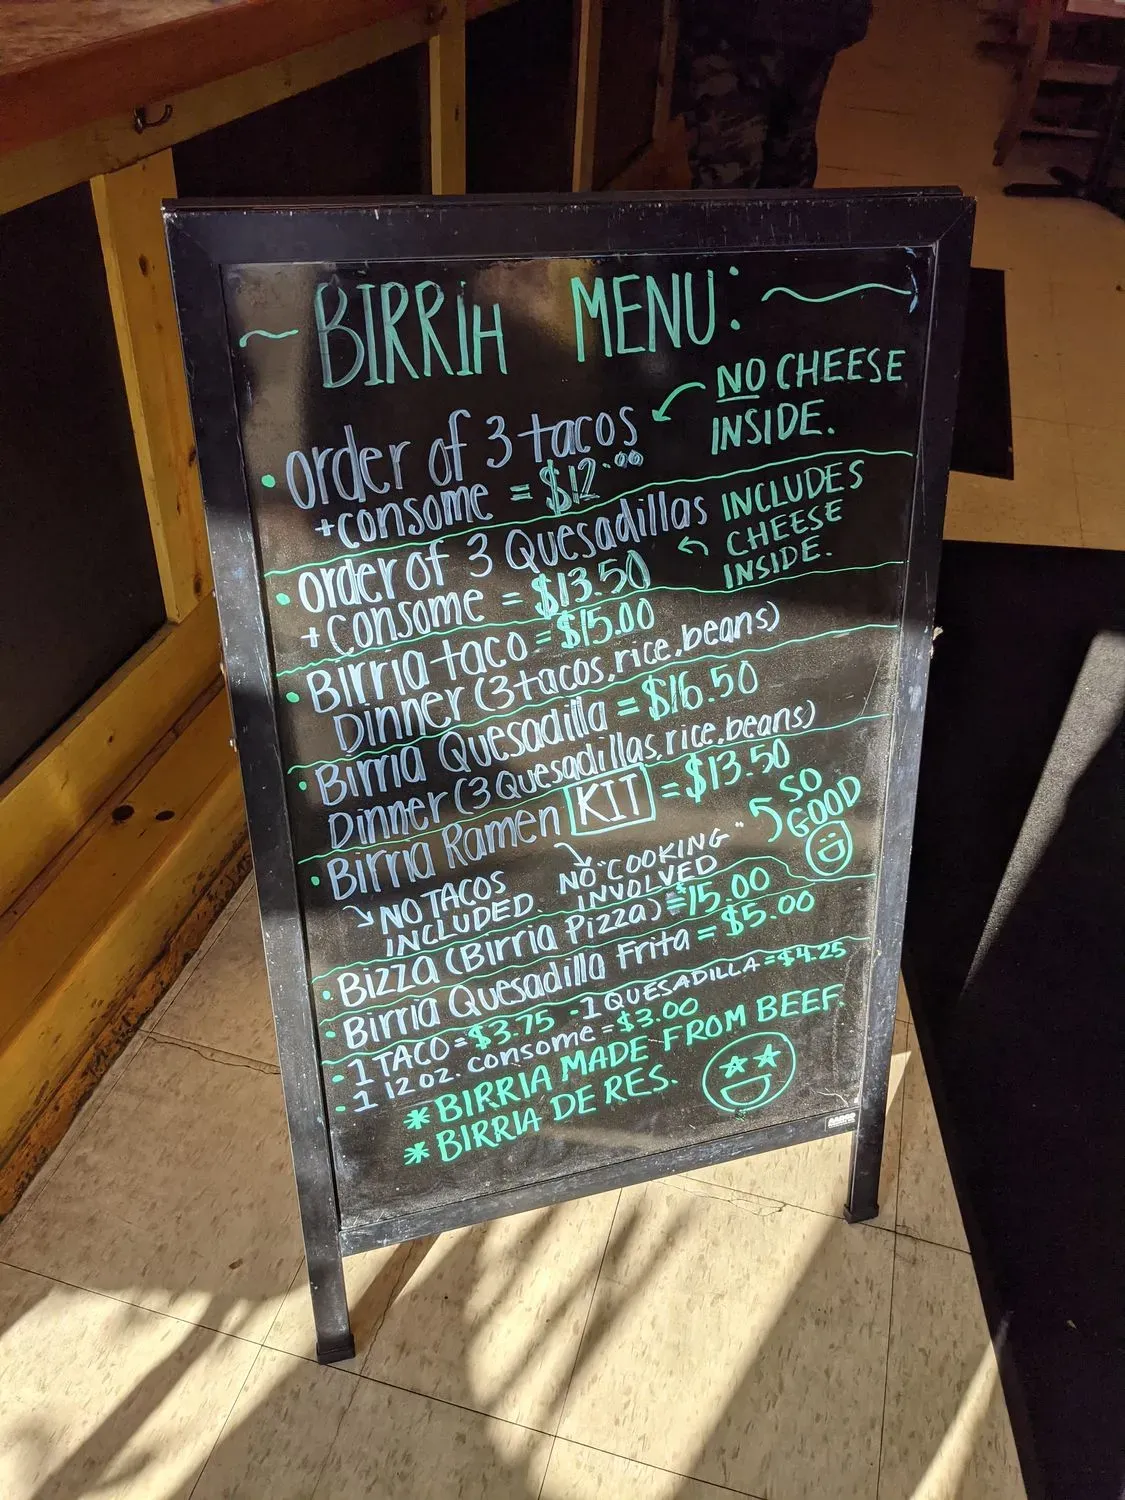 ~ BIRRIA MENU: ~
• order of 3 tacos
+consome = $12.00
NO CHEESE
INSIDE.
• order of 3 Quesadillas
+consome = $13.50
INCLUDES
CHEESE
INSIDE.
• Birria taco = $15.00
Dinner (3 tacos, rice, beans)
• Birria Quesadilla = $16.50
Dinner (3 Quesadillas, rice, beans)
• Birria Ramen KIT = $13.50
SO
GOOD
NO TACOS
INCLUDED.
NO "COOKING"
INVOLVED
• Bizza (Birria Pizza) = $15.00
• Birria Quesadilla Frita = $5.00
• 1 TACO = $3.75 • 1 QUESADILLA = $4.25
• 1 12 oz. consome = $3.00
* BIRRIA MADE FROM BEEF.
* BIRRIA DE RES.